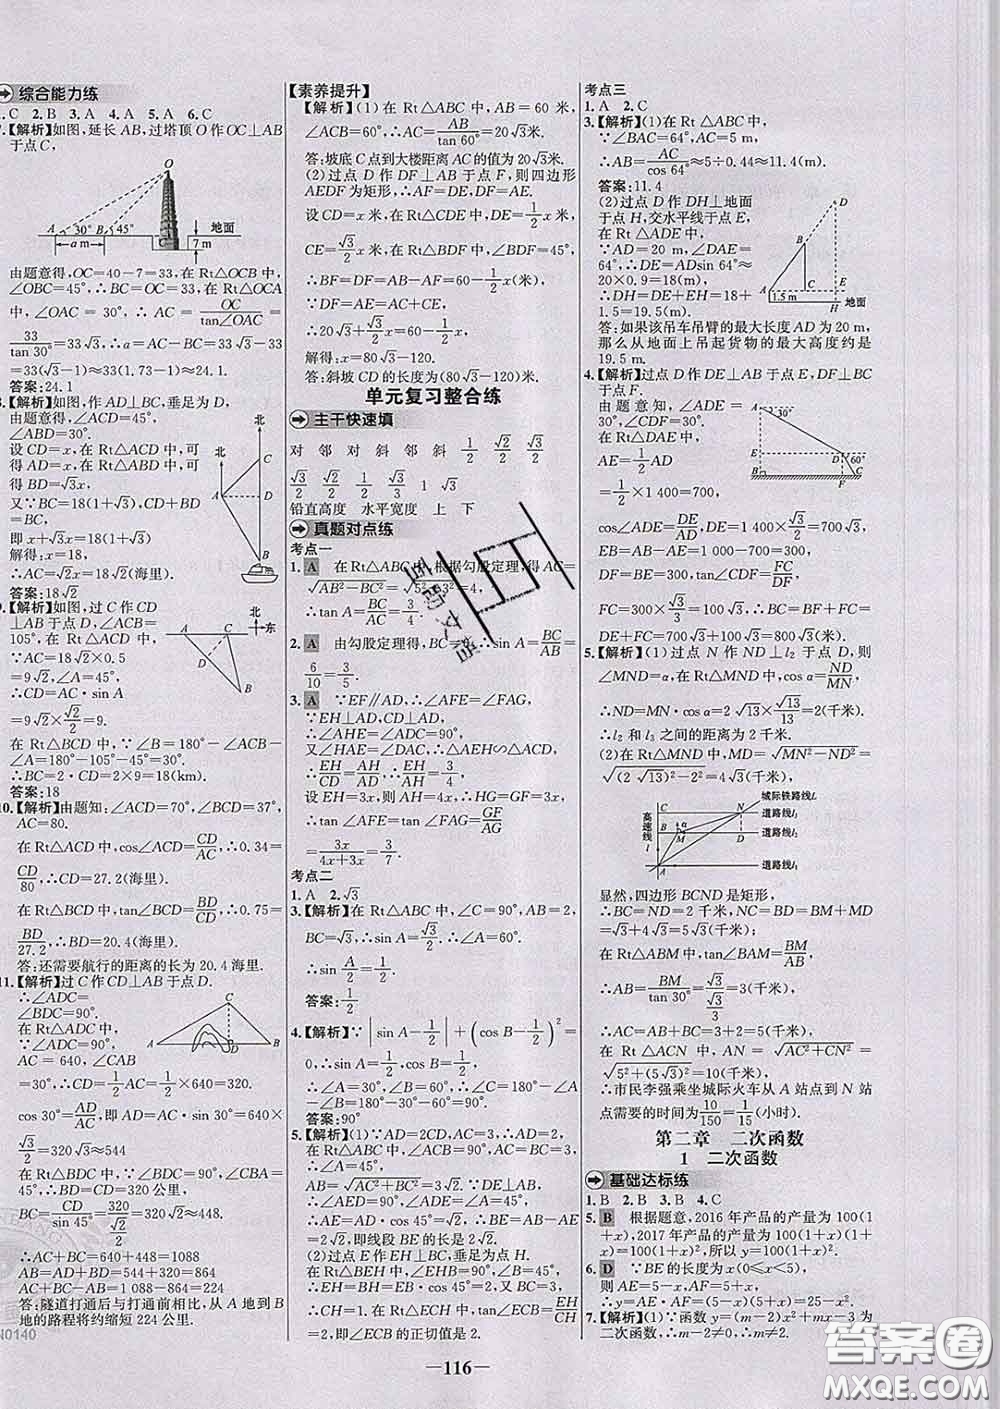 综合能力练
1.C 2.B 3.A 4.A 5.A 6.C
7.【解析】如图,延长AB,过塔顶O作OC⊥AB
于点C,
O
A 30° B 45° 地面
a m C 7 m
由题意得,OC=40-7=33,在Rt△OCB中,
∠OBC=45°,∴BC=OC=33,在Rt△OCA
中,∠OAC=30°,∴AC=OC/tan∠OAC=
33/tan 30°=33√3,∴a=AC-BC=33√3-33
=33(√3-1)≈33(1.73-1)≈24.1.
答案:24.1
8.【解析】如图,作AD⊥BC,垂足为D,
由题意得,∠ACD=45°,
∠ABD=30°.
设CD=x,在Rt△ACD中,可
得AD=x,在Rt△ABD中,可
得BD=√3x,
又∵BC=18(1+√3),CD+BD
=BC,
即x+√3x=18(1+√3)
解得:x=18
∴AC=√2x=18√2(海里).
答案:18√2
北 C D A 北 B
9.【解析】如图,过C作CD
⊥AB于点D,∠ACB=
105°,在Rt△ACD中,
∵∠A=45°,AC=18×1/2
=9√2,∠A=45°,
∴CD=AC·sin 45°
=9√2×√2/2=9.
在Rt△BCD中,∵∠B=180°-∠ACB-
∠A=180°-105°-45°=30°,
∴BC=2·CD=2×9=18(km).
答案:18
北 东 A C D B
10.【解析】由题知:∠ACD=70°,∠BCD=37°,
AC=80.
在Rt△ACD中,cos∠ACD=CD/AC,∴0.34=
CD/80,∴CD=27.2(海里).
在Rt△BCD中,tan∠BCD=BD/CD,∴0.75=
BD/27.2,∴BD=20.4(海里).
答:还需要航行的距离的长为20.4海里.
11.【解析】过C作CD⊥AB于点D.
∴∠ADC=
∠BDC=90°.
在Rt△ADC中,
∵∠ADC=90°,
AC=640,∠CAB
=30°,∴CD=1/2AC=1/2×640=320.
C A D B
cos 30°=AD/AC,即AD=AC·sin 30°=640×
√3/2=320√3≈320×1.7≈544
在Rt△BDC中,∵∠BDC=90°,∠CBA=
45°,∴BD=CD=320公里,
BC=CD/sin 45°=320/(√2/2)=320√2≈448.
∴AC+BC=640+448=1088
AB=AD+BD=544+320=864
∴AC+BC-AB=1088-864=224
答:隧道打通后与打通前相比,从A地到B
地的路程将约缩短224公里.
N0140
【素养提升】
【解析】(1)在Rt△ABC中,AB=60米,
∠ACB=60°,∴AC=AB/tan 60°=20√3米.
答:坡底C点到大楼距离AC的值为20√3米.
(2)过点D作DF⊥AB于点F,则四边形
AEDF为矩形,∴AF=DE,DF=AE.
设CD=x米,在Rt△CDE中,DE=1/2x米,
CE=√3/2x米,在Rt△BDF中,∠BDF=45°,
∴BF=DF=AB-AF=60-1/2x(米),
∵DF=AE=AC+CE,
∴20√3+√3/2x=60-1/2x,
解得:x=80√3-120.
答:斜坡CD的长度为(80√3-120)米.
单元复习整合练
主干快速填
对 邻 对 斜 邻 斜 1/2 √2/2
√3/2 √3/2 √2/2 1/2 √3/3 1 √3
铅直高度 水平宽度 上 下
真题对点练
考点一
1. A 在Rt△ABC中,根据勾股定理,得AC=
√(AB²-BC²)=√(5²-3²)=4,
∴tan A=BC/AC=3/4.
2. A 由勾股定理得,BC=6,∴sin A=BC/AB=
6/10=3/5.
3. A ∵EF∥AD,∴∠AFE=∠FAG,
∵EH⊥AD,CD⊥AD,
∴∠AHE=∠ADC=90°,
又∠HAE=∠DAC,∴△AEH∽△ACD,
∴EH/AH=CD/AD=3/4.
设EH=3x,则AH=4x,∴HG=GF=3x,
∴tan∠AFE=tan∠FAG=GF/AG
=3x/(4x+3x)=3/7.
考点二
1.A 2.√3
3.【解析】在Rt△ABC中,∠C=90°,AB=2,
BC=√3,∴sin A=√3/2,∴∠A=60°.
∴sin A/2=1/2.
答案:1/2
4.【解析】∵|sin A-1/2|+(cos B-1/2)²=
0,∴sin A=1/2,cos B=1/2.
∴∠A=30°,∠B=60°,∴∠C=180°-∠A-
∠B=180°-30°-60°=90°.
答案:90°
5.【解析】(1)∵AD=2CD,AC=3,∴AD=2.
∵在Rt△ABC中,∠ACB=90°,AC=BC=3,
∴∠A=45°,
AB=√(AC²+BC²)=√(3²+3²)=3√2.
∵DE⊥AB,∴∠AED=90°,∠ADE=∠A=45°.
∴AE=AD·cos 45°=2×√2/2=√2.
∴BE=AB-AE=3√2-√2=2√2.
即:线段BE的长是2√2.
(2)过点E作EH⊥BC,垂足为点H.
在Rt△BEH中,∠EHB=90°,∠B=45°.
∴EH=BH=EB·cos 45°=2,又BC=3,
∴CH=1.在Rt△ECH中,tan∠ECB=EH/CH
=2,即∠ECB的正切值是2.
考点三
1.A 2.C
3.【解析】(1)在Rt△ABC中,
∵∠BAC=64°,AC=5 m,
∴AB=AC/cos 64°≈5÷0.44≈11.4(m).
答案:11.4
(2)过点D作DH⊥地面
于点H,交水平线于点E,
在Rt△ADE中,
∵AD=20 m,∠DAE=
64°,∴DE=ADsin 64°≈
20×0.9=18(m)
∴DH=DE+EH=18+
1.5=19.5(m).
D B A C E 1.5 m 地面 H
答:如果该吊车吊臂的最大长度AD为20 m,
那么从地面上吊起货物的最大高度约是
19.5 m.
4.【解析】过点D作DE⊥AB于点E,过点D作
DF⊥BC于点F.
由题意知,∠ADE=
30°,∠CDF=30°.
在Rt△DAE中,
AE=1/2AD
=1/2×1 400=700,
A 30° E D 60° B F C
cos∠ADE=DE/AD,DE=1 400×√3/2=700√3,
EB=AB-AE=1 000-700=300,
DF=BE=300,tan∠CDF=FC/DF,
FC=300×√3/3=100√3,∴BC=BF+FC=
DE+FC=700√3+100√3=800√3(米).
5.【解析】(1)过点N作ND⊥l₂于点D,则
∠MND=α,在Rt△MND中,cos α=ND/MN,
∴ND=MN·cos α=2√13×√13/13=2(千米).
∴l₂和l₃之间的距离为2千米.
(2)在Rt△MND中,MD=√(MN²-ND²)=
√((2√13)²-2²)=4√3(千米),
高速线 C N 城际铁路线L 道路线l₃ B α M D 道路线l₂ A 道路线l₁
显然,四边形BCND是矩形,
∴BC=ND=2千米,ND=BD=BM+MD
=5√3(千米),
在Rt△ABM中,tan∠BAM=BM/AB,
∴AB=BM/tan 30°=√3/(√3/3)=3(千米),
∴AC=AB+BC=3+2=5(千米),
在Rt△ACN中,AN=√(AC²+CN²)=
√(5²+(5√3)²)=10(千米),
∴市民李强乘坐城际火车从A站点到N站
点需要的时间为10/150=1/15(小时).
第二章 二次函数
1 二次函数
基础达标练
1.B 2.B 3.B 4.C
5. B 根据题意,2016年产品的产量为100(1
+x),2017年产品的产量为100(1+x)(1+
x)=100(1+x)²,所以y=100(1+x)².
6. D ∵BE的长度为x(0≤x<5),
则AE=5-x,AF=5+x,
∴y=AE·AF=(5-x)(5+x)=25-x².
7.【解析】(1)∵函数y=(m-2)x²+mx-3为
二次函数,∴m-2≠0,∴m≠2.
—116—
答案圈
MXQE.COM